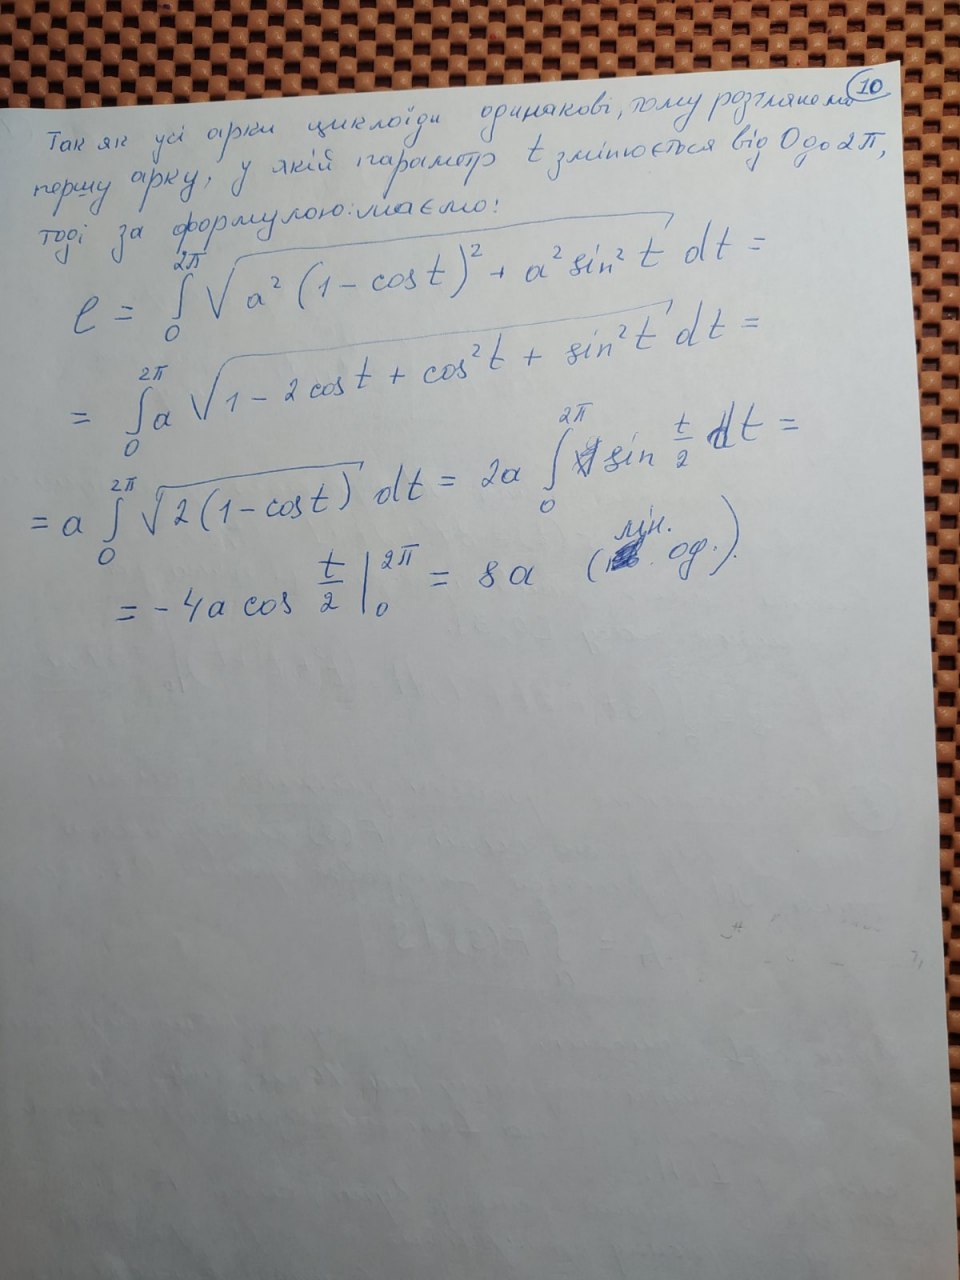 10
Так як усі арки циклоїди одинакові, тому розглянемо
першу арку, у якій параметр t змінюється від 0 до 2π,
тоді за формулою: маємо:
l = ∫₀^{2π} √(a² (1 - cos t)² + a² sin² t) dt =
= ∫₀^{2π} a √(1 - 2 cos t + cos² t + sin² t) dt =
= a ∫₀^{2π} √(2(1 - cos t)) dt = 2a ∫₀^{2π} sin t/2 dt =
= -4a cos t/2 |₀^{2π} = 8a (лін. од.).